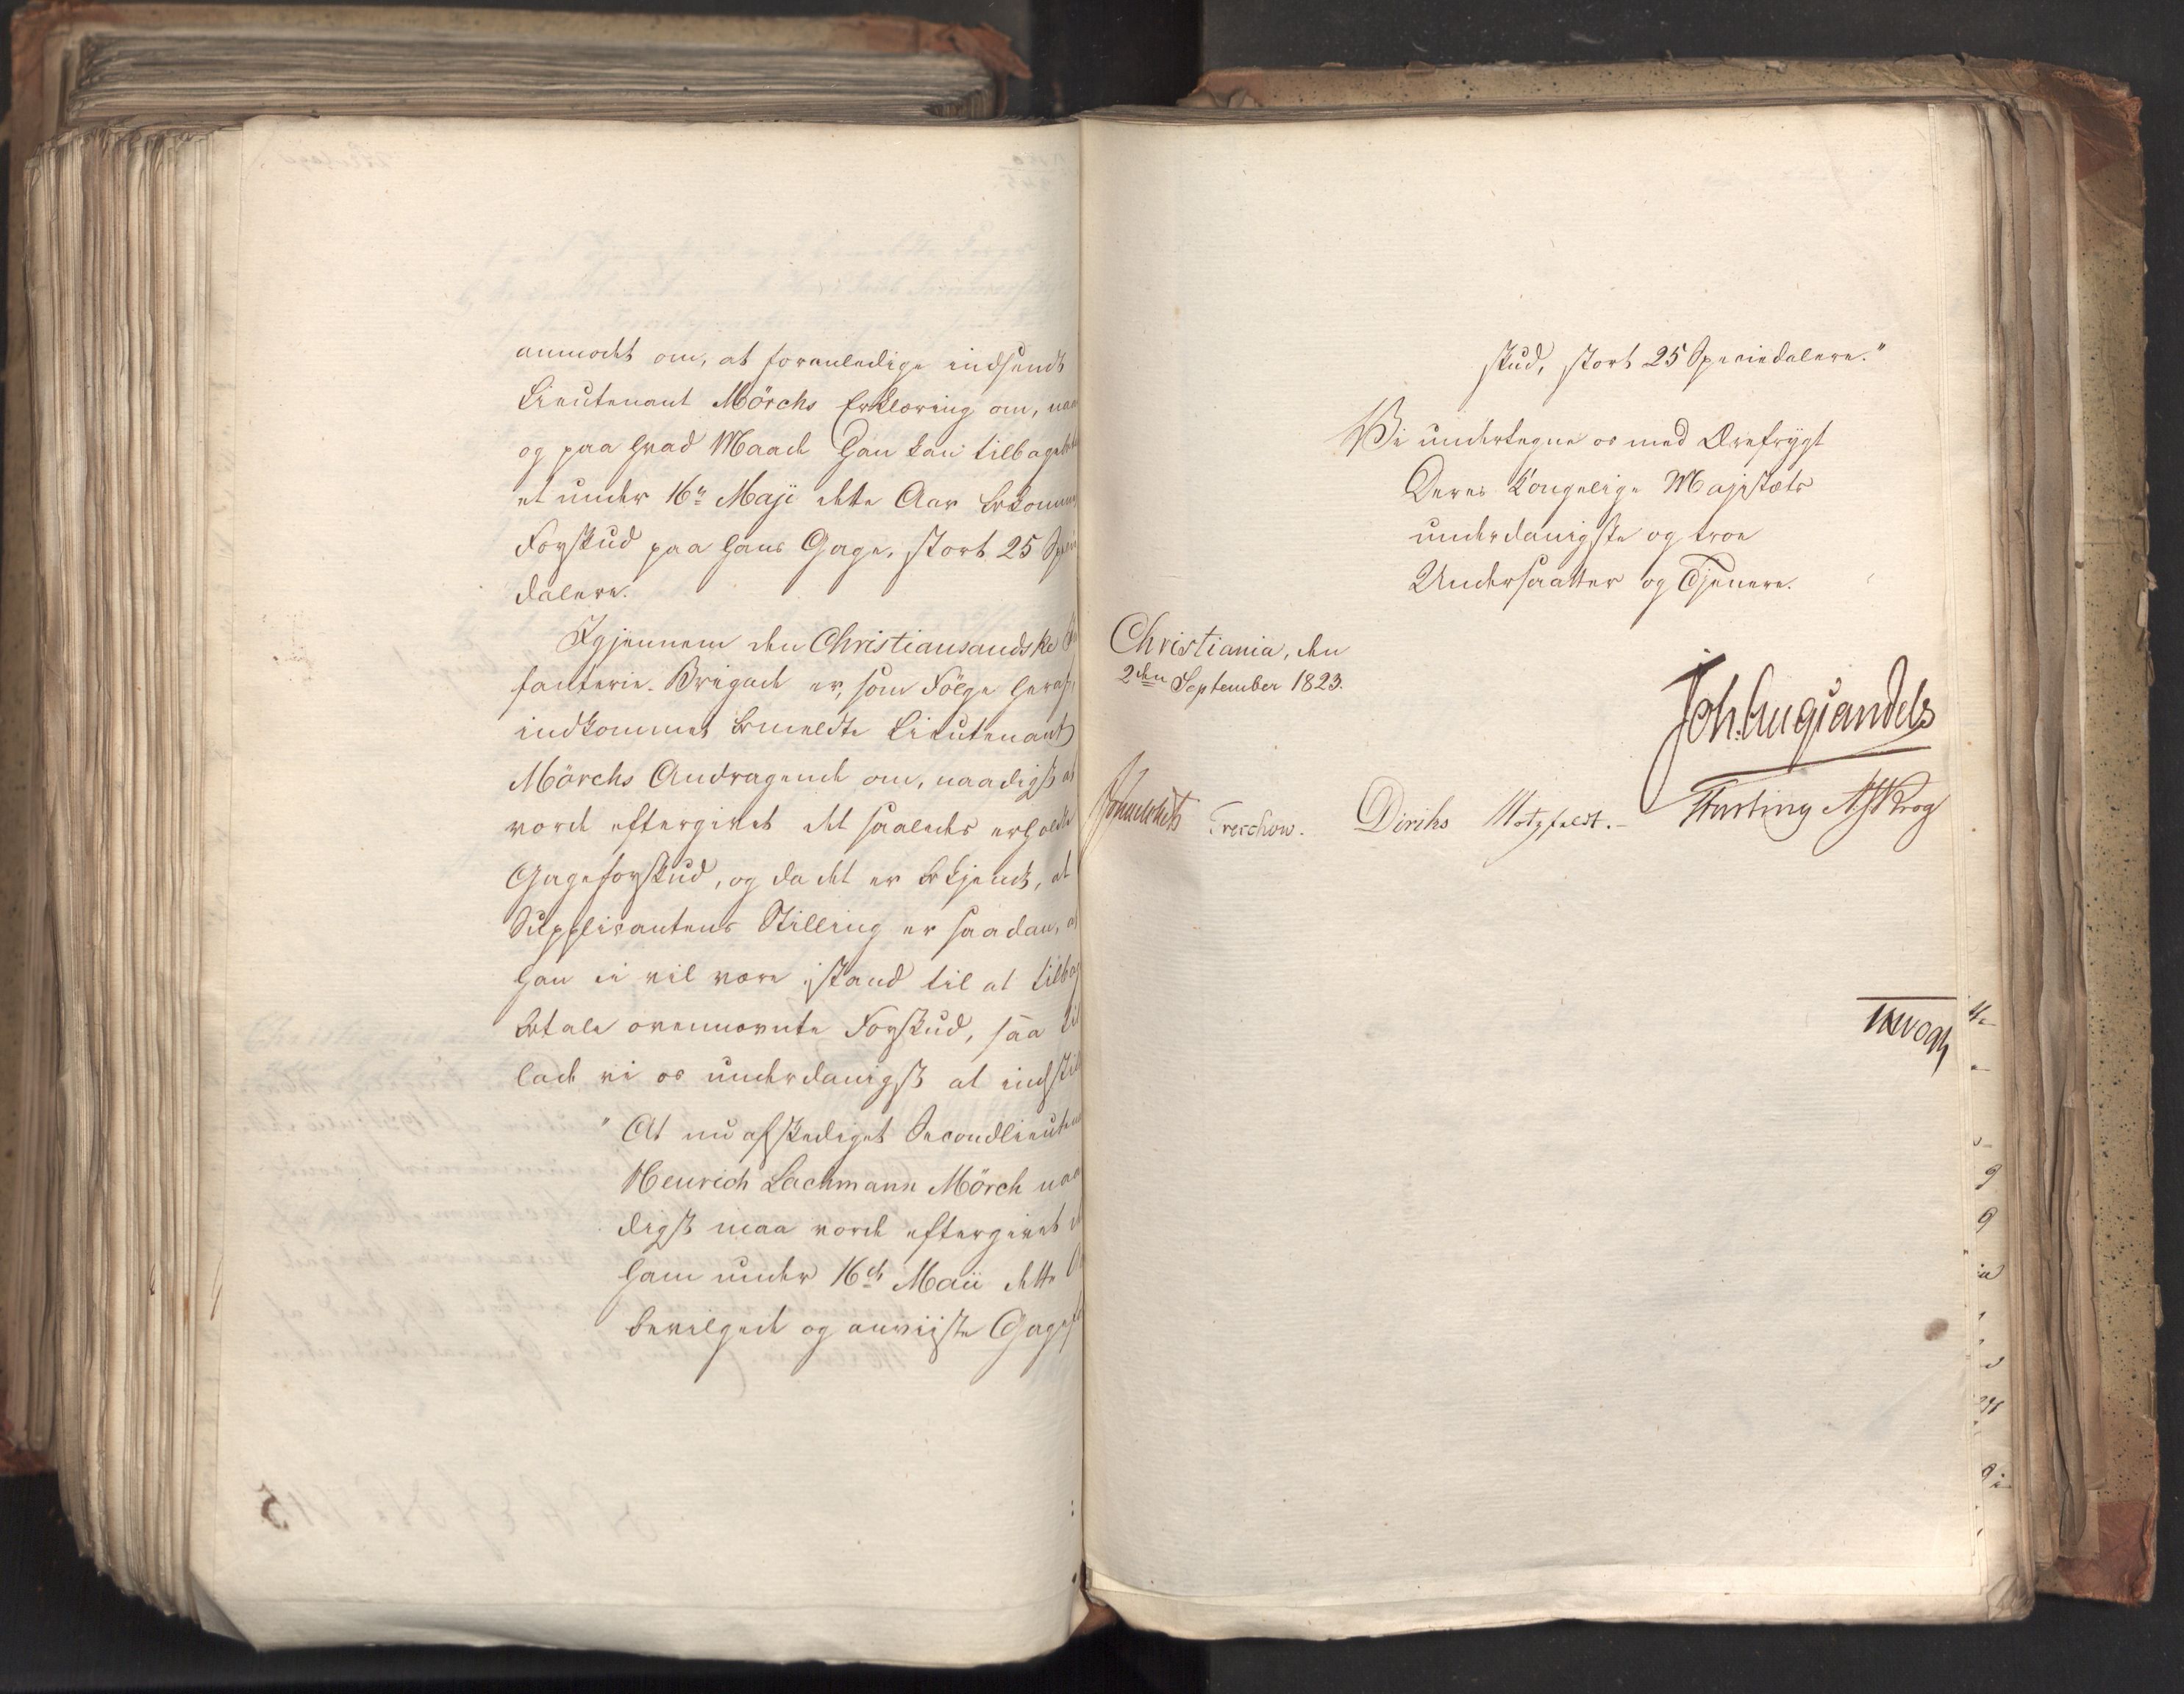 anmodet om, at foranledige indsendt
Lieutenant Mörchs Erklæring om, naar
og paa hvad Maade Han kan tilbagebet
et under 16n Maji dette Aar bekommen
Forskud paa hans Gage, stort 25 Specie
dalere.
Igjennem den Christiansandske In
fanterie-Brigade er, som Følge heraf,
indkommet bemeldte Lieutenant
Mörchs Andragende om, naadigst at
vorde eftergivet det saaledes erholdte
Gageforskud, og da det er bekjendt, at
Supplicantens Stilling er saadan, at
han ei vil være istand til at tilbage
betale ovennævnte Forskud, saa til
lade vi os underdanigst at indstille
"At nu afskediget Secondlieutenant
Henrich Lachmann Mörch naa
digst maa vorde eftergivet det
ham under 16de Maii dette Aar
bevilgede og anviiste Gagefor
skud, stort 25 Speciedalere."
Vi undertegne os med Ærefrygt
Deres Kongelige Majestæts
underdanigste og troe
Undersaatter og Tjenere.
Christiania, den
2den September 1823.
Joh. Aug Sandels
Sommerhielm Treschow. Diriks Motzfeldt. Fasting A H Krog